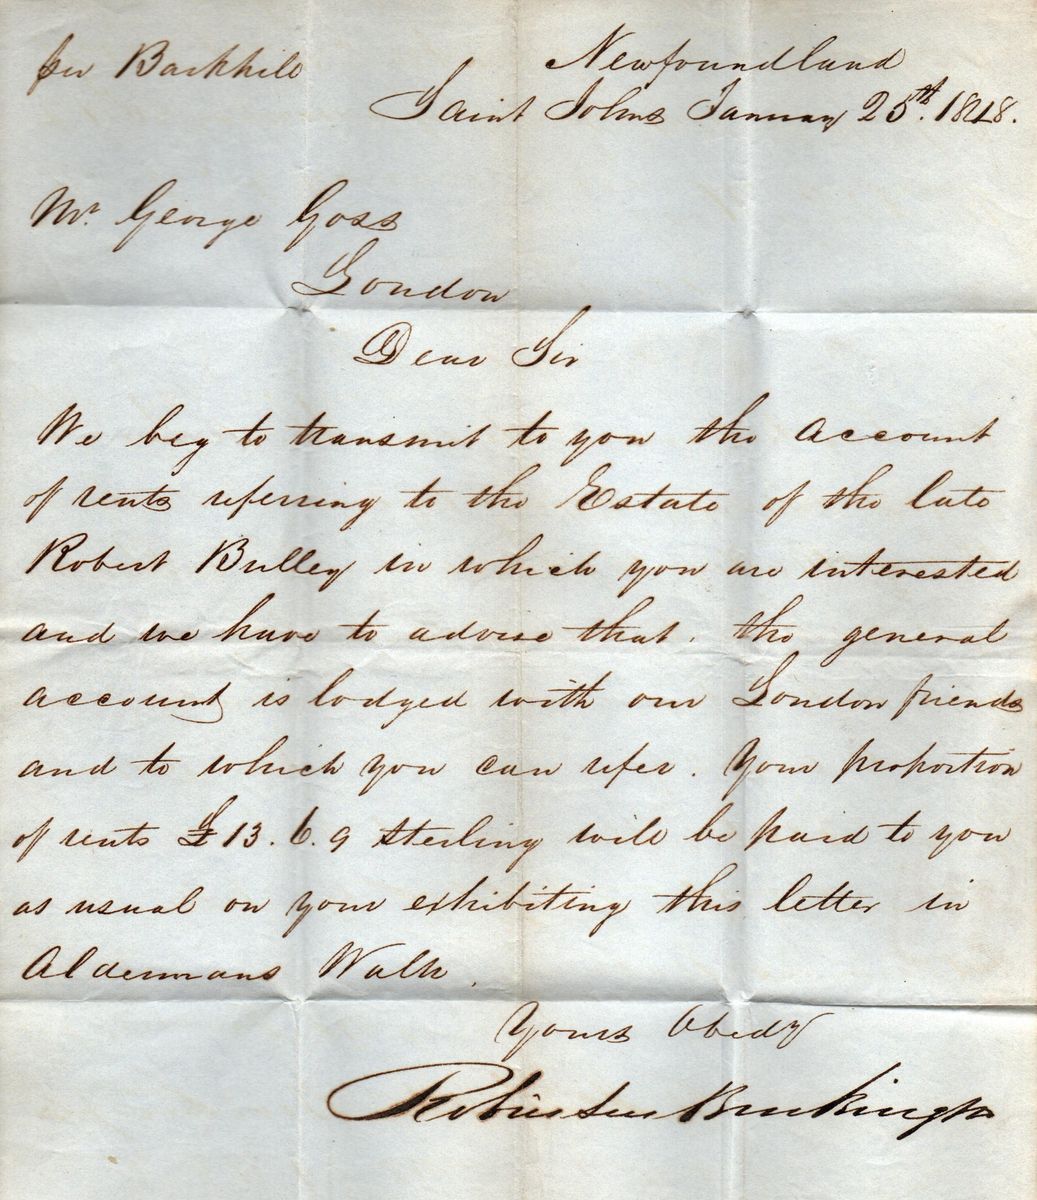 per Barkhill
Newfoundland
Saint Johns January 25th. 1848.
Mr. George Goss
London
Dear Sir
We beg to transmit to you the account
of rents referring to the Estate of the late
Robert Bulley in which you are interested
and we have to advise that. the general
account is lodged with our London friends
and to which you can refer. Your proportion
of rents £13.6.9 sterling will be paid to you
as usual on your exhibiting this letter in
Aldermans Walk.
Yours Obedy
Robinson